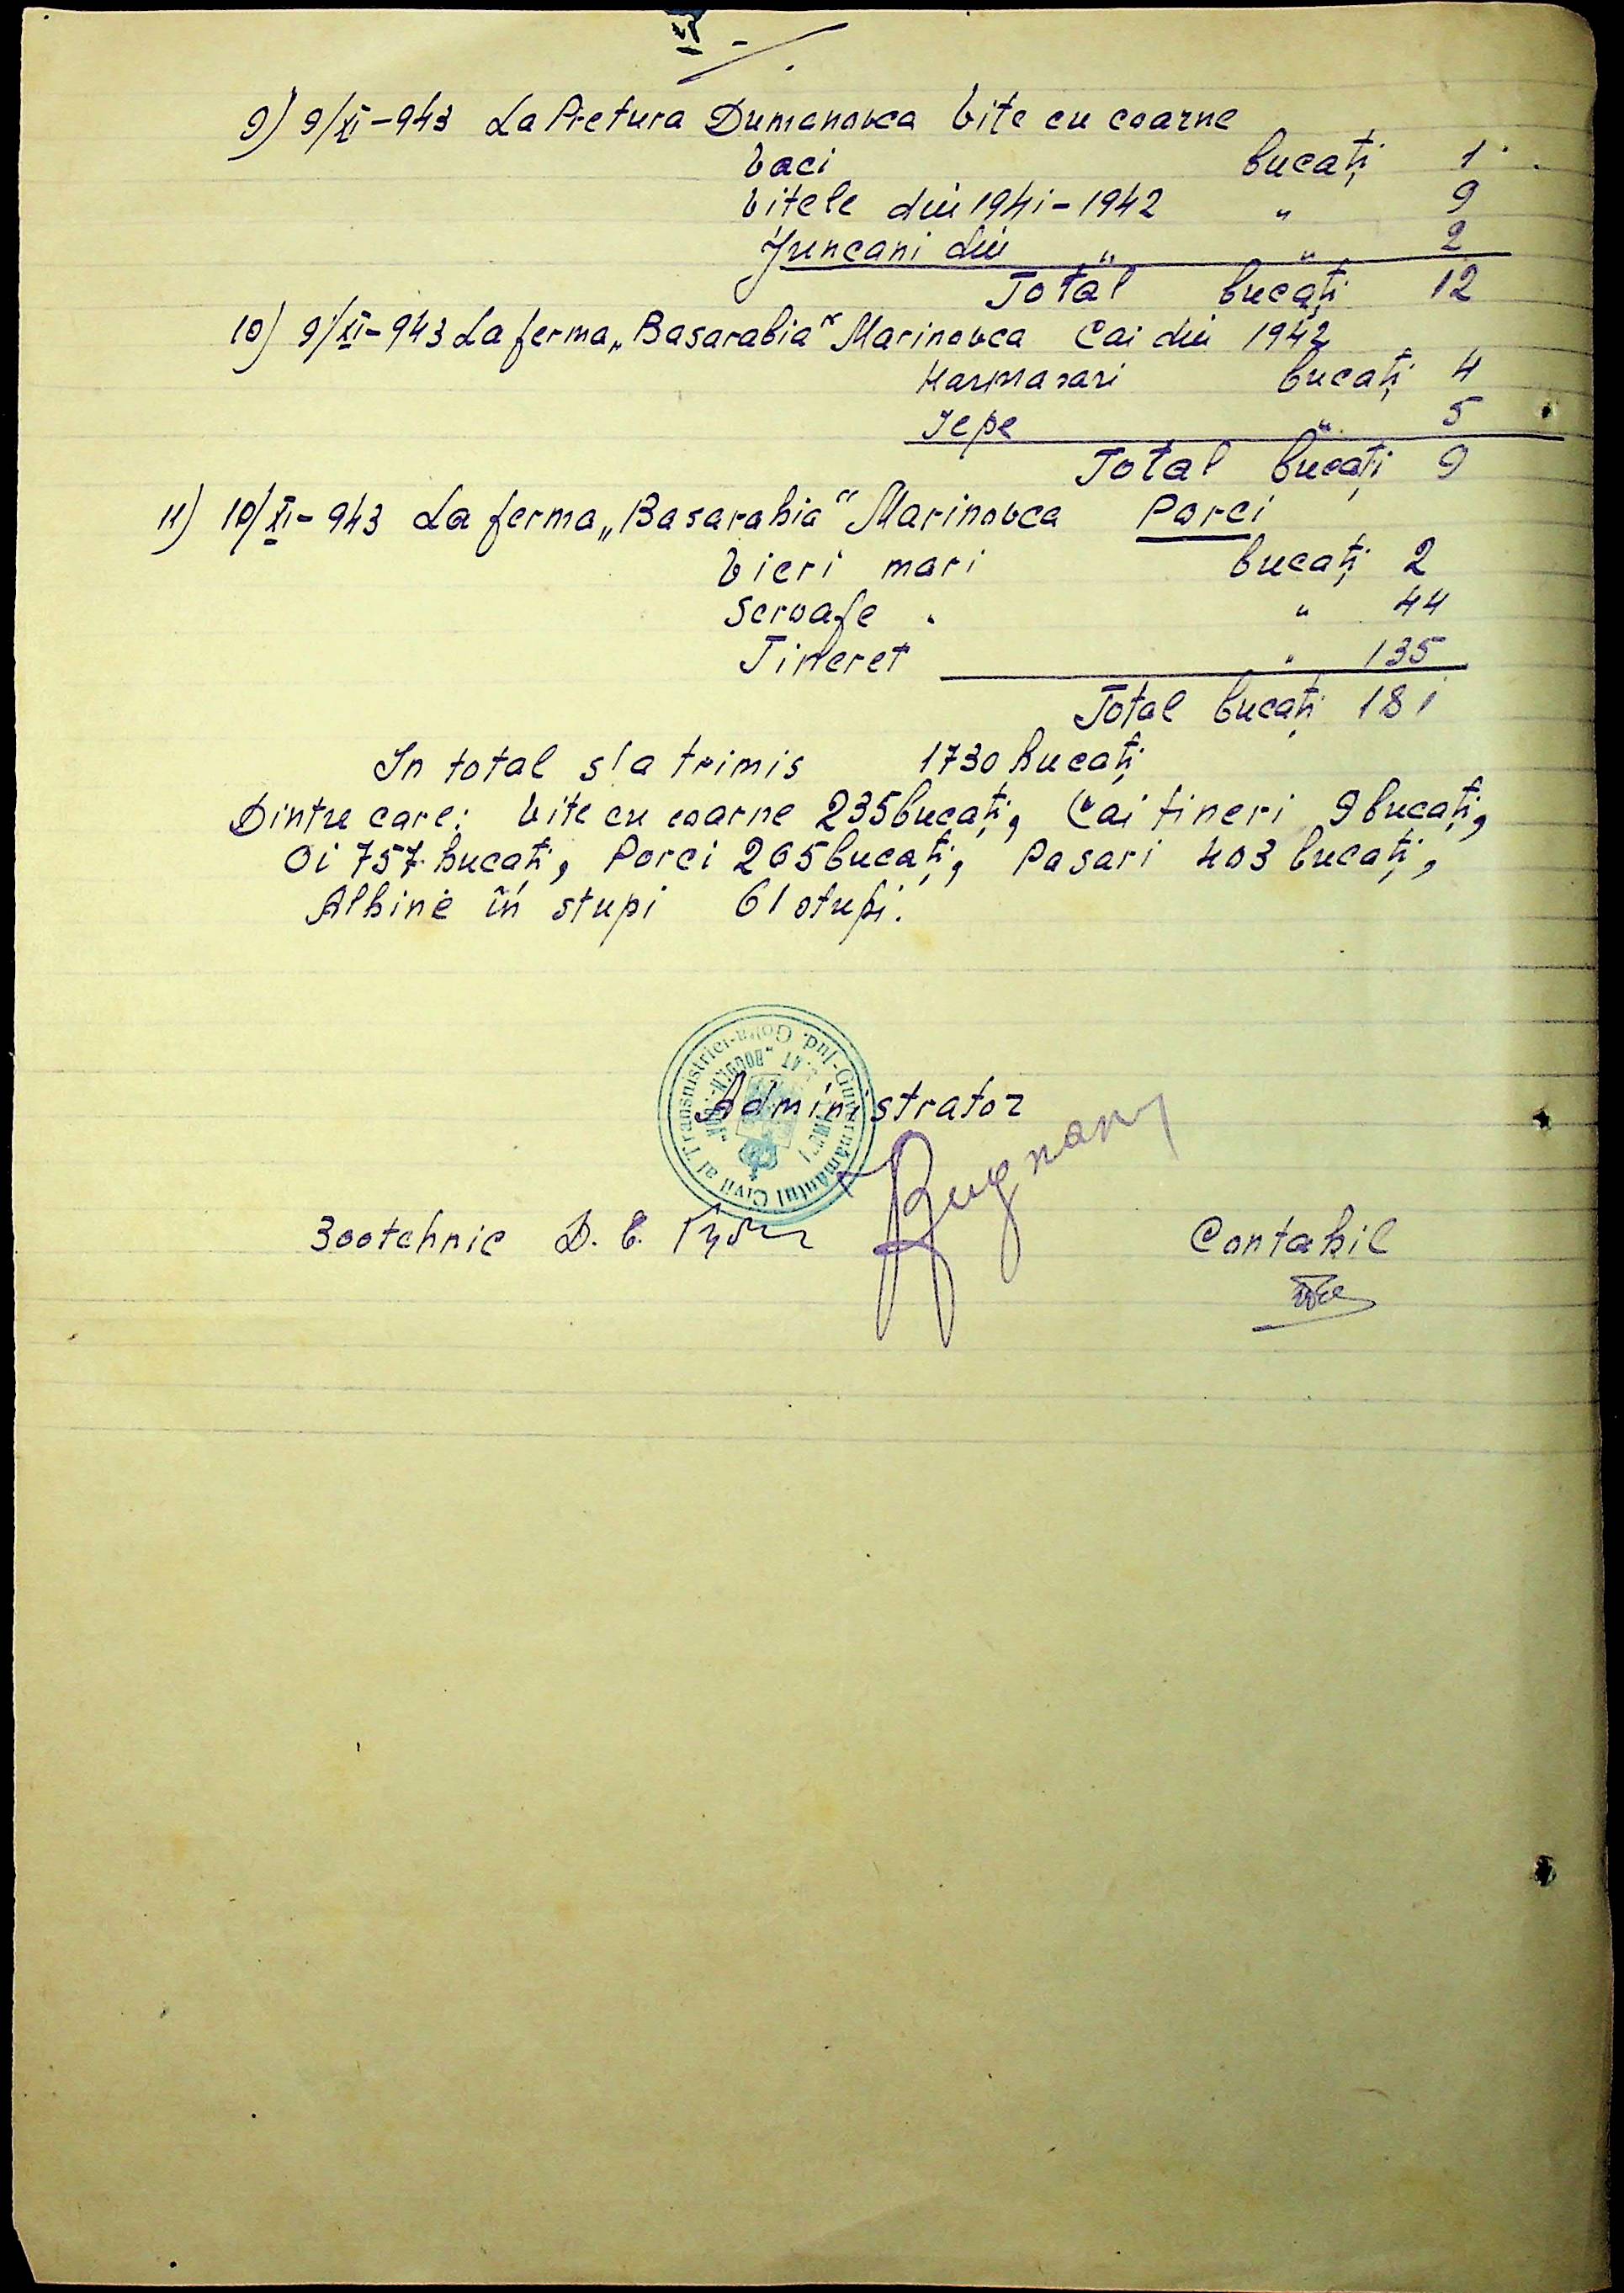 9) 9/XI-943 La Pretura Dumanovca Vite cu coarne
Vaci bucați 1
Vitele din 1941-1942 " 9
Juncani din " " 2
Total bucați 12
10) 9/XI-943 La ferma „Basarabia" Marinovca Cai din 1942
Harmasari bucați 4
Iepe " 5
Total bucați 9
11) 10/XI-943 La ferma „Basarabia" Marinovca Porci
Vieri mari bucați 2
Scroafe " 44
Tineret " 135
Total bucați 181
In total s'a trimis 1730 bucați
Dintre care: Vite cu coarne 235 bucați, Cai tineri 9 bucați,
Oi 757 bucați, Porci 265 bucați, Pasari 403 bucați,
Albine în stupi 61 stupi.
Guvernământul Civil al Transnistriei-Jud. Golta
Administrator
Zootehnic D. V.
Contabil